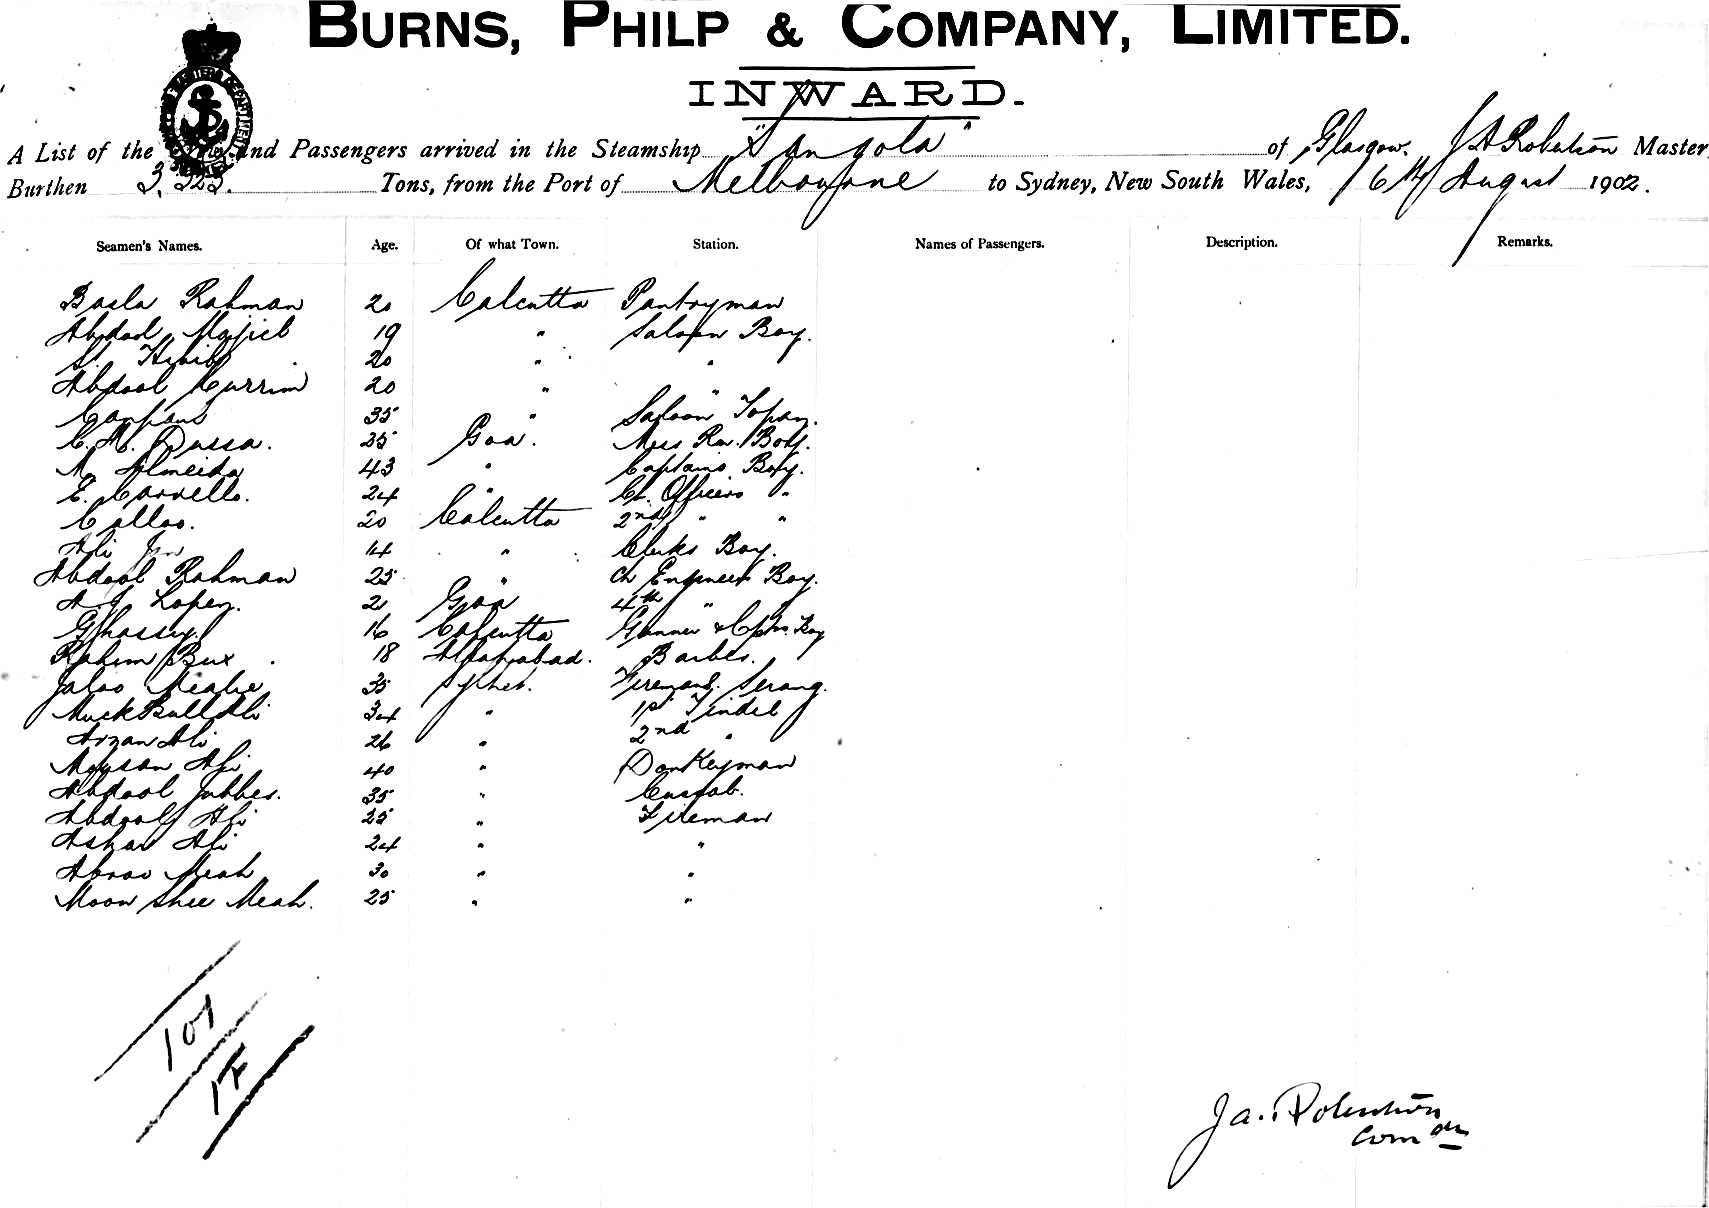 BURNS, PHILP & COMPANY, LIMITED.
INWARD.
A List of the and Passengers arrived in the Steamship "Angola" of Glasgow. J A Robertson Master
Burthen 3,323. Tons, from the Port of Melbourne to Sydney, New South Wales, 6th August 1902.
Seamen's Names. Age. Of what Town. Station. Names of Passengers. Description. Remarks.
Basla Rahman 20 Calcutta Pantryman
Abdool Majid 19 " Saloon Boy.
Sk. Habib 20 " "
Abdool Currim 20 " "
35 " Saloon Topaz.
C. M. Dussa. 25 Goa. Mess Rm. Boy.
M. Almeida 43 " Captains Boy.
E. Carvello. 24 " Ch. Officers "
Calloo. 20 Calcutta 2nd " "
Ali Jan 14 " Clerks Boy.
Abdool Rahman 25 " Ch Engineers Boy.
A J Lopez. 21 Goa 4th " "
Ghassy. 16 Calcutta Gunner & Boy
Rahim Bux 18 Allahabad. Barber.
Jaloo Meahe 35 Sylhet. Firemans Serang.
MuckBull Ali 34 " 1st Tindel
Arzan Ali 26 " 2nd "
Moysan Ali 40 " Donkeyman
Abdool Jubber. 35 " Cassab.
Abdool Ali 25 " Fireman
Askar Ali 24 " "
Abroo Meah 30 " "
Moon Shee Meah. 25 " "
101
14
Ja. Robertson
Comdr